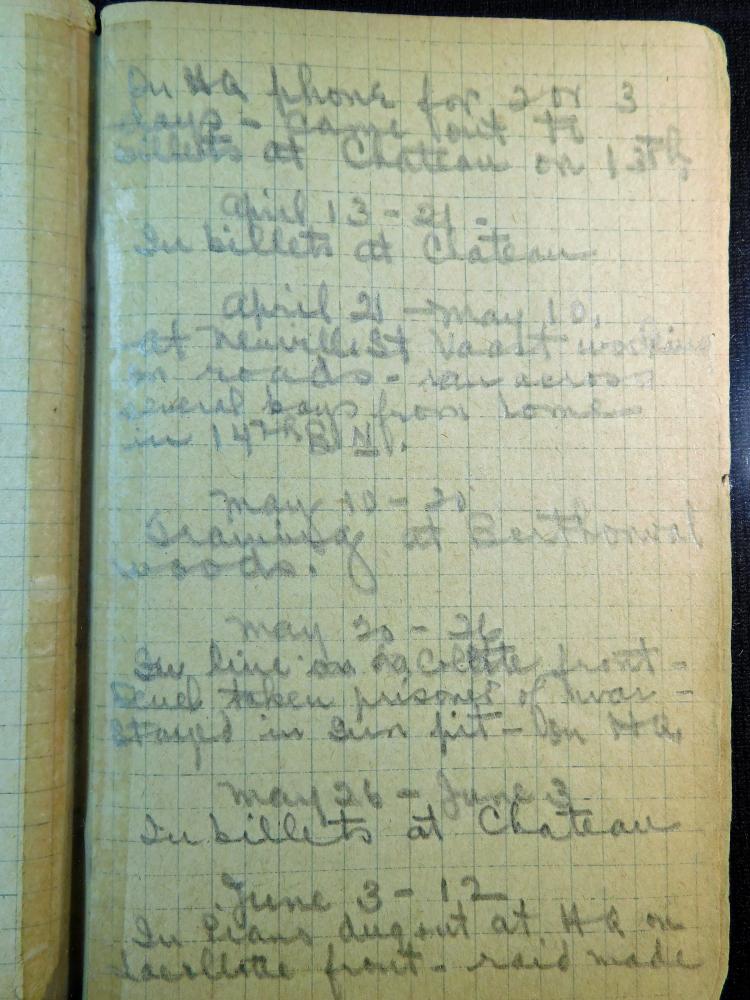 On HQ phone for 2 or 3
days - came out to
billets at Chateau on 13th
April 13 - 21 -
In billets at Chateau
April 21 - May 10,
at Neuville St Vaast working
on roads - ran across
several boys from home
in 14th BN.
May 10 - 20
Training at Berthonval
woods.
May 20 - 26
In line on La Collotte front -
taken prisoner of war -
Stayed in gun pit - On HQ
May 26 - June 3
In billets at Chateau
June 3 - 12
In dugout at HQ on
Lacollotte front - raid made